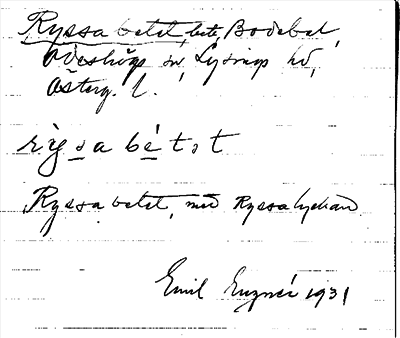 Ryssa betet, bete, Bodebol,
Ödeshögs sn, Lysings hd,
Österg. l.
rỳsa bét,t
Ryssa betet, med Ryssa lyckan
Emil Enznér 1931